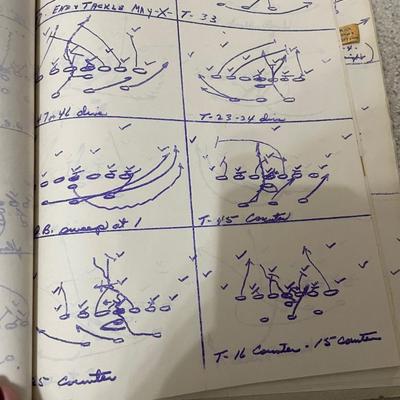 END & TACKLE MAY-X- T-33
47 n 46 dive
T-23-24 dive
Q.B. sweep at 1
T-45 Counter
5 Counter
T-16 Counter - 15 Counter